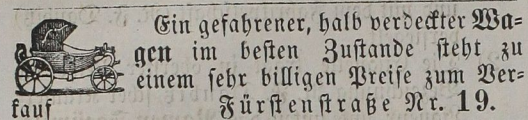 Ein gefahrener, halb verdeckter Wa=
gen im besten Zustande steht zu
einem sehr billigen Preise zum Ver=
kauf Fürstenstraße Nr. 19.